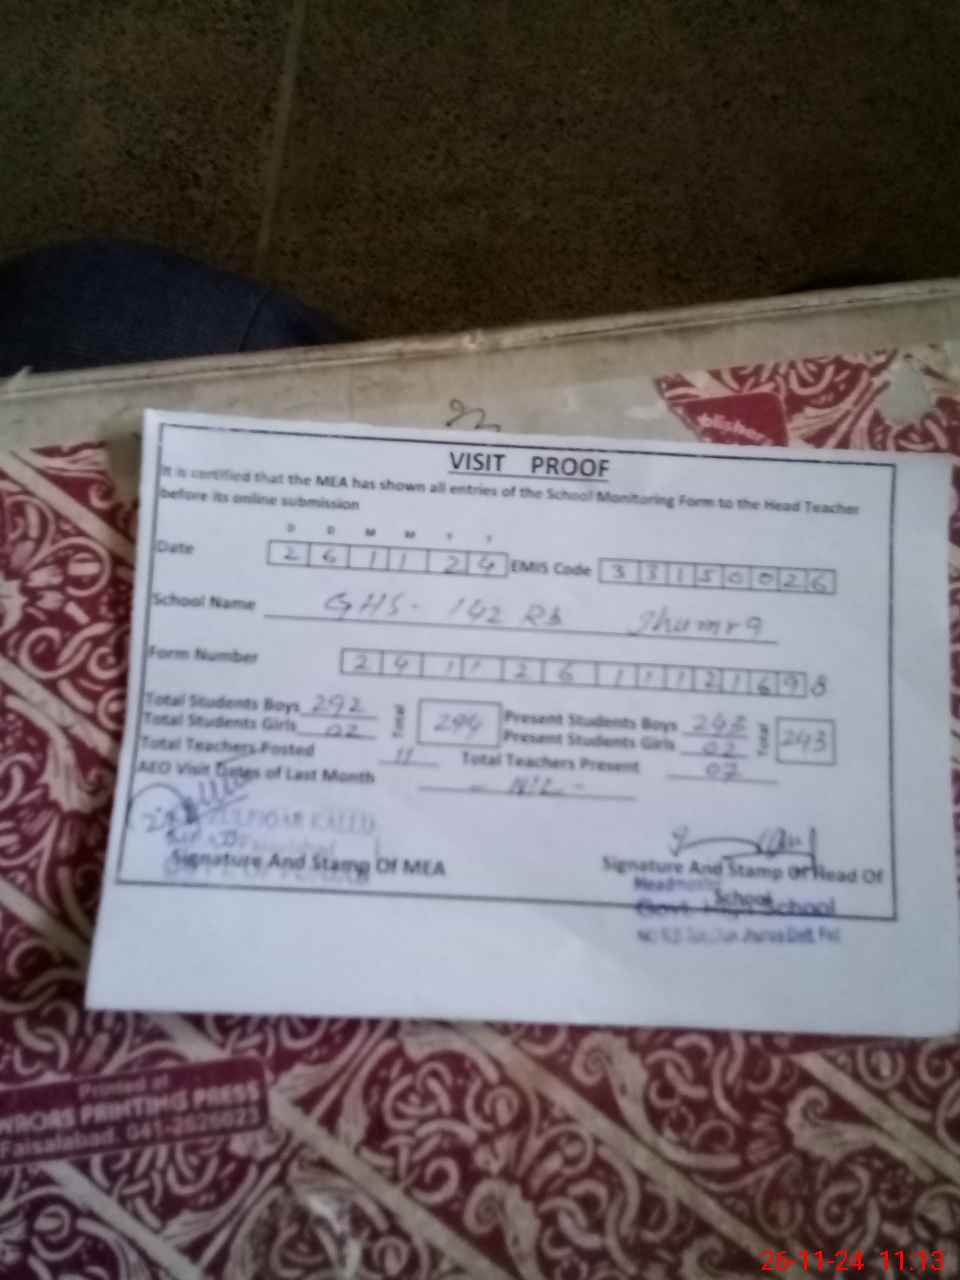 Publishers
VISIT PROOF
It is certified that the MEA has shown all entries of the School Monitoring Form to the Head Teacher
before its online submission
D D M M Y Y
Date 2 6 1 1 2 4 EMIS Code 3 3 1 5 0 0 2 6
School Name GHS - 142 RB Jhumra
Form Number 2 4 1 1 2 6 1 1 1 2 1 6 9 8
Total Students Boys 292 Total 294 Present Students Boys Total 243
Total Students Girls 02 Present Students Girls 02
Total Teachers Posted 11 Total Teachers Present 07
AEO Visit Dates of Last Month - NIL -
Signature And Stamp Of MEA
Signature And Stamp Of Head Of
School
Govt. High School
Printed at
PRINTING PRESS
Faisalabad. 041-2626023
26-11-24 11:13